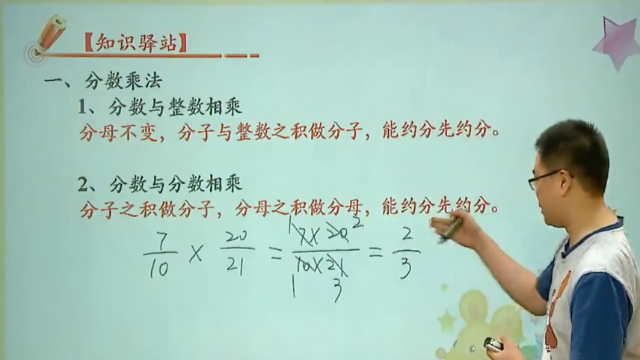 【知识驿站】
一、分数乘法
1、分数与整数相乘
分母不变，分子与整数之积做分子，能约分先约分。
2、分数与分数相乘
分子之积做分子，分母之积做分母，能约分先约分。
1 2
7/10 × 20/21 = 7×20/10×21 = 2/3
1 3